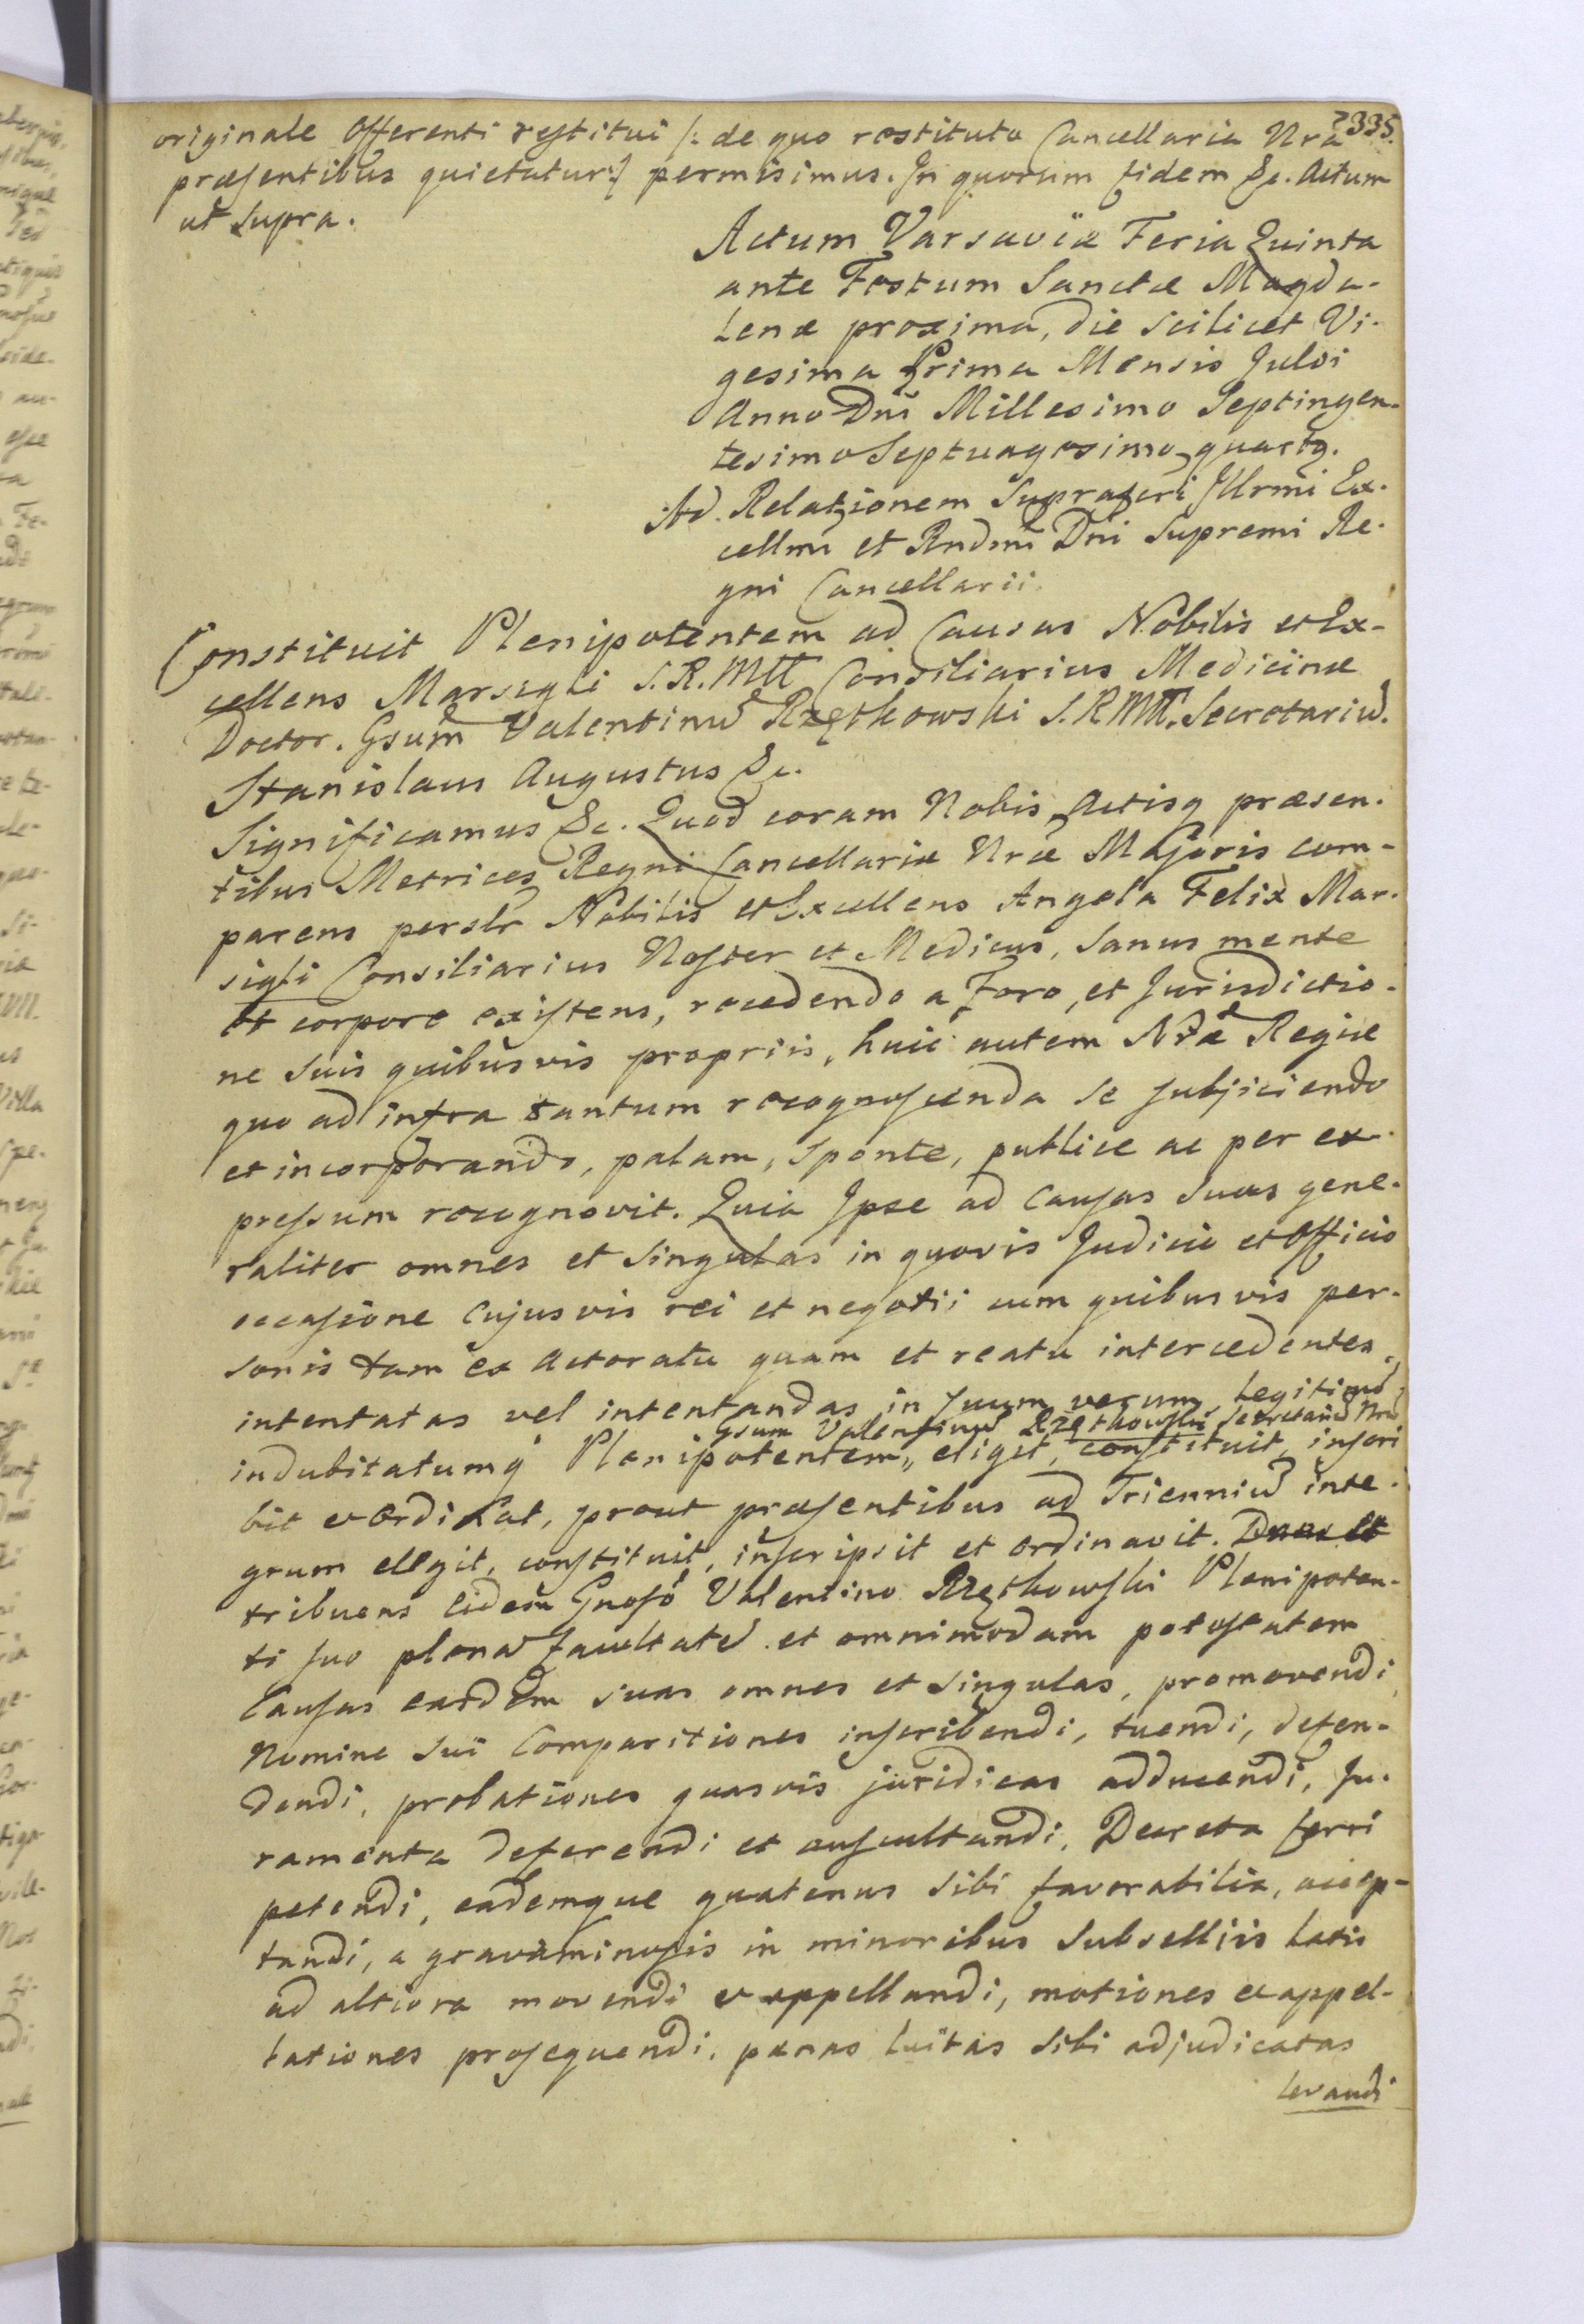 335.
originale Offerenti restitui /: de quo restituto Cancellaria Nra
præsentibus quietatur :/ permisimus. In quorum fidem &c. Actum
ut supra.
Actum Varsaviæ Feria Quinta
ante Festum Sanctæ Magda-
lenæ proxima, die scilicet Vi-
gesima Prima Mensis Julii
Anno Dni Millesimo Septingen-
tesimo Septuagesimo quarto.
Ad Relationem Suprascri Illrmi Ex-
cellmi et Rndmi Dni Supremi Re-
gni Cancellarii.
Constituit Plenipotentem ad Causas Nobilis et Ex-
cellens Marsigli S.R.Mtt Consiliarius Medicinæ
Doctor. Gsum Valentinu Rzętkowski S.R.Mtt. Secretariu.
Stanislaus Augustus &c.
Significamus &c. Quod coram Nobis Actisq præsen-
tibus Metrices Regni Cancellariæ Nræ Majoris com-
parens perslr Nobilis et Excellens Angela Felix Mar-
sigli Consiliarius Noster et Medicus, sanus mente
et corpore existens, recedendo a Foro, et Jurisdictio-
ne suis quibusvis propriis, huic autem Nræ Regiæ
quo ad infra tantum recognoscenda se subjiciendo
et incorporando, palam, sponte, publice ac per ex-
pressum recognovit. Quia Ipse ad Causas suas gene-
raliter omnes et singulas in quovis Judicio et Officio
occasione cujusvis rei et negotii cum quibusvis per-
sonis tam ex Actoratu quam et reatu intercedentes,
intentatas vel intentandas, in suum verum, Legitimu
Gsum Valentinu Rzętkowski Secretariu Nru
indubitatumq Plenipotentem,, eligit, constituit, inscri
bit et ordinat, prout præsentibus ad Trienniu inte-
grum ellegit, constituit, inscripsit et ordinavit. Dans et
tribuens Eidem Gnoso Valentino Rzętkowski Plenipoten-
ti suo plena facultate et omnimodam potestatem
Causas easdem suas omnes et singulas, promovendi,
Nomine sui Comparitiones inscribendi, tuendi, defen-
dendi, probationes quasvis juridicas adducendi, Ju-
ramenta deferendi et auscultandi, Decreta ferri
petendi, eademque quatenus sibi favorabilia, accep-
tandi, a gravaminosis in minoribus Subselliis latis
ad altiora movendi et appellandi, motiones et appel-
lationes prosequendi, pænas luitas sibi adjudicatas
levandi